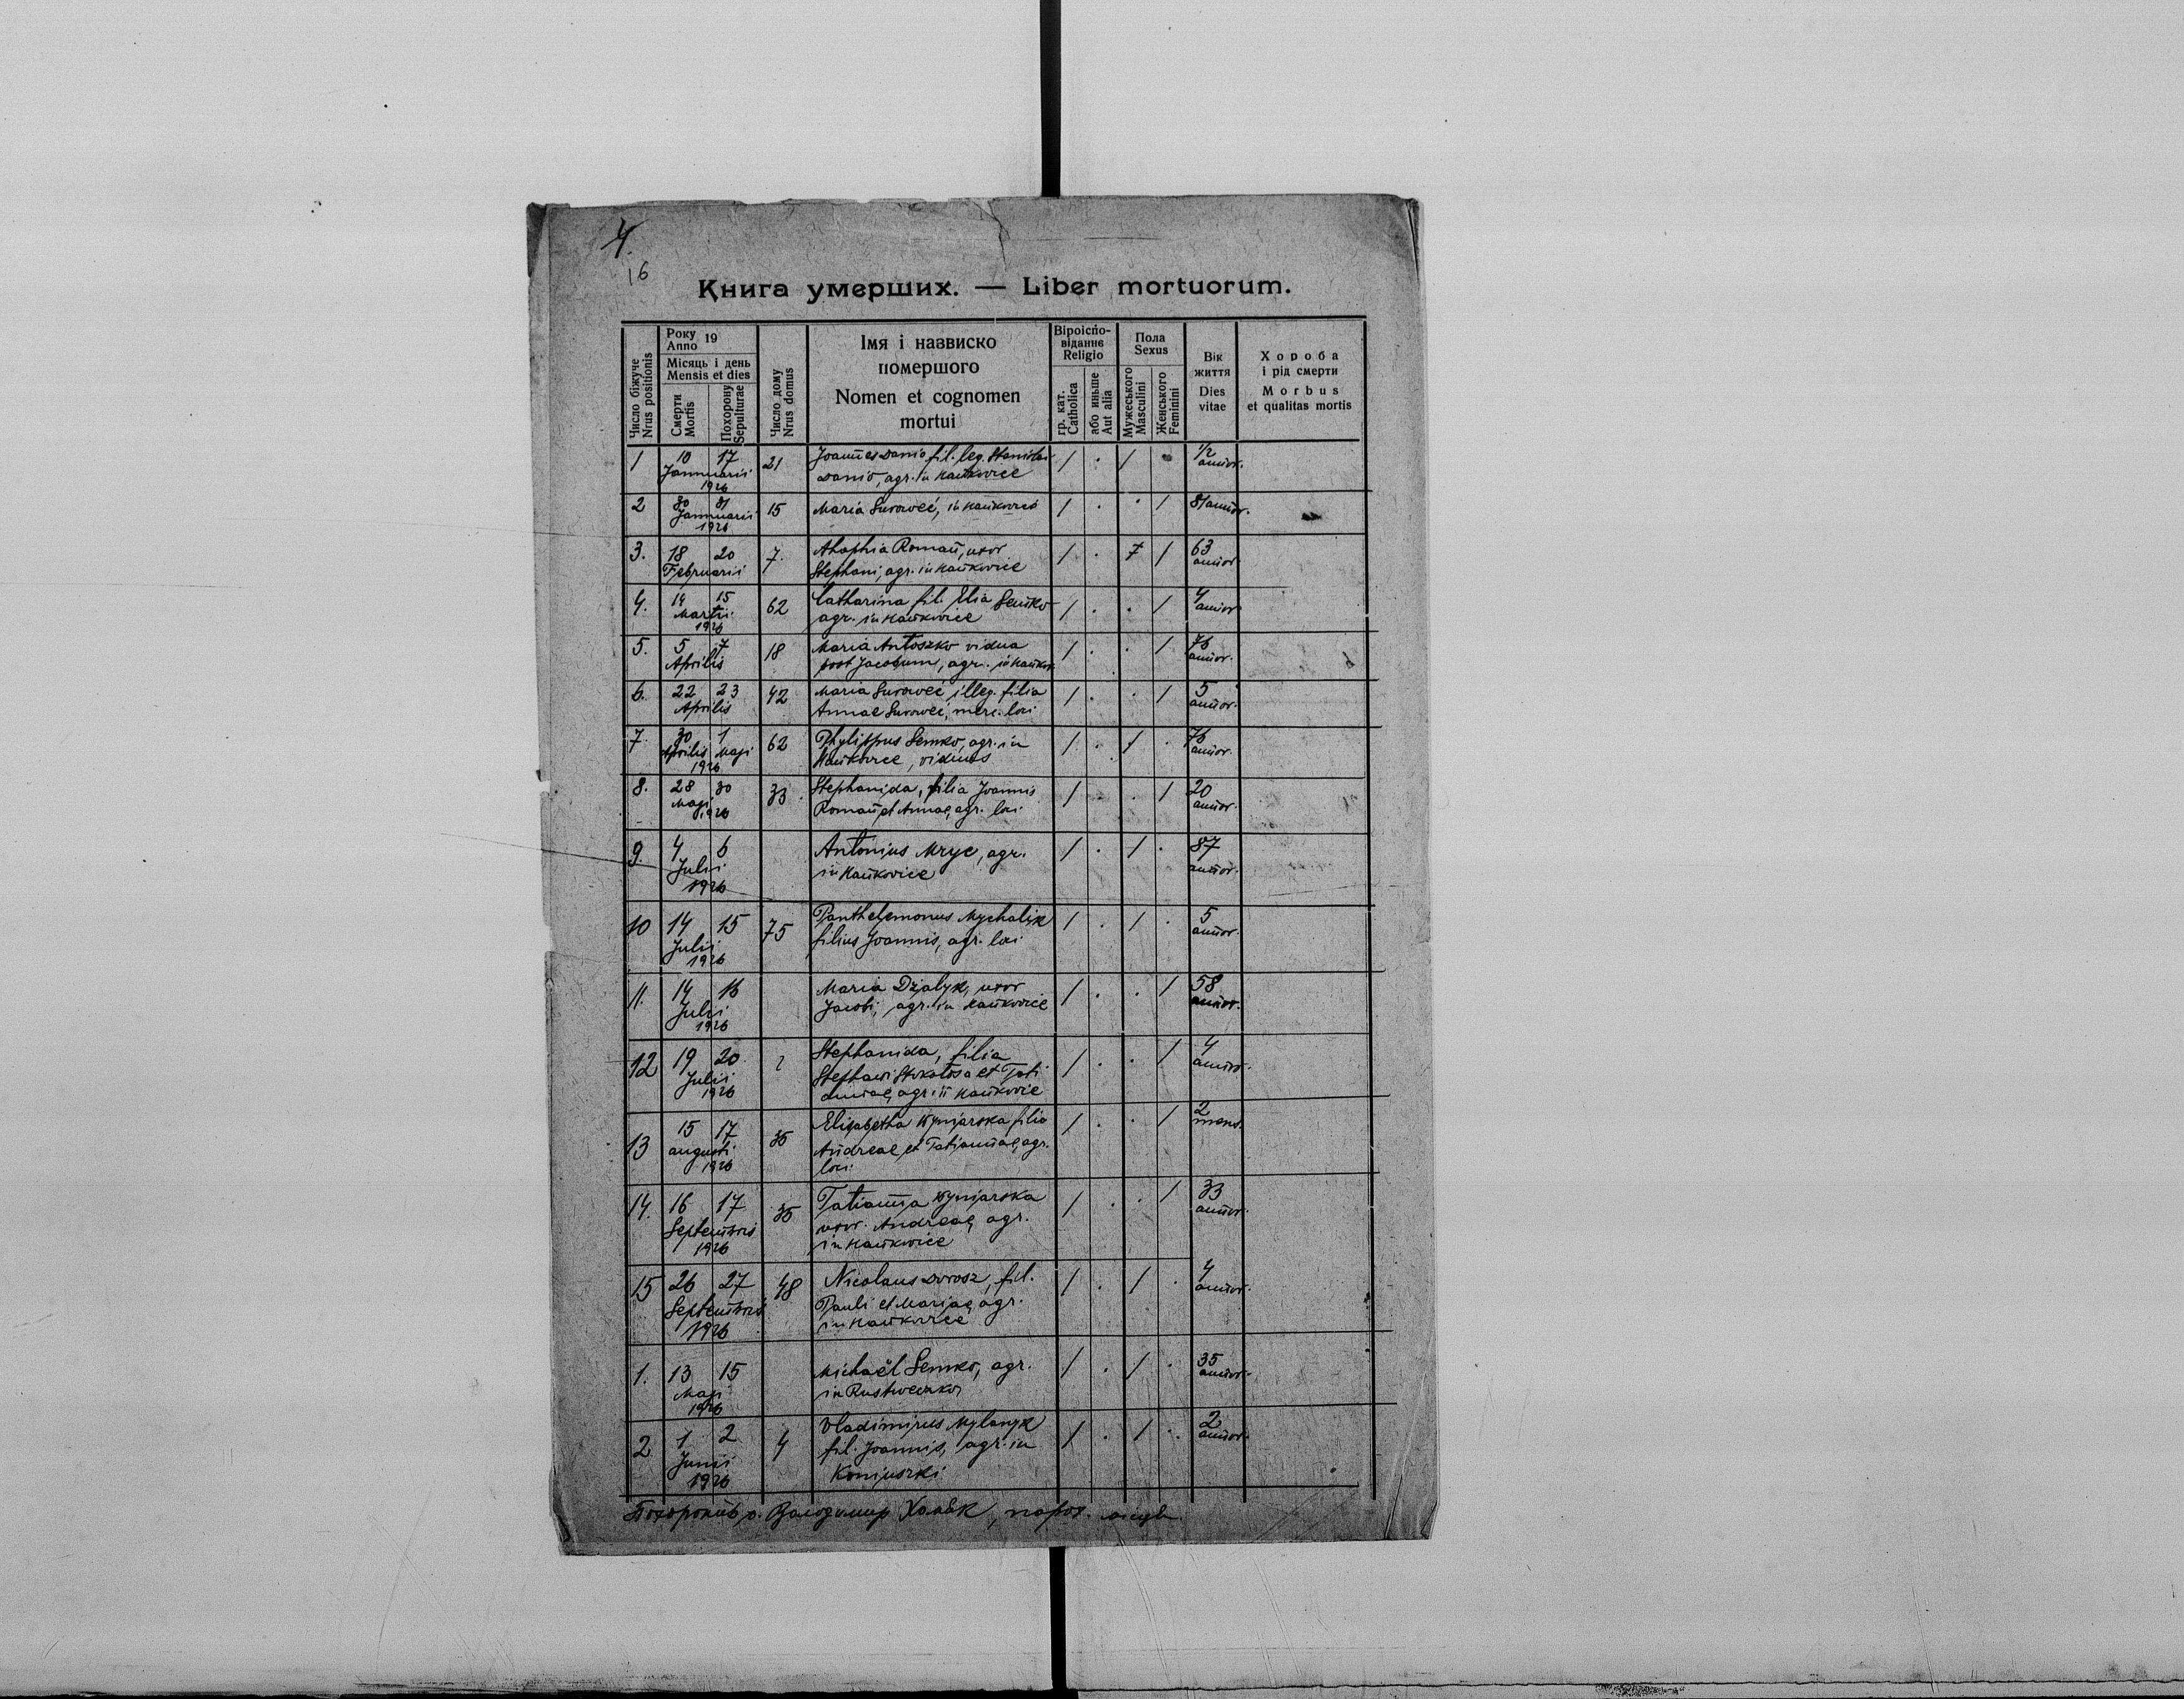 4.
16
Книга умерших. — Liber mortuorum.
Число біжуче
Nrus positionis
Року
Anno 19
Місяць і день
Mensis et dies
Смерти
Mortis
Похорону
Sepulturae
Число дому
Nrus domus
Імя і назвиско
помершого
Nomen et cognomen
mortui
Віроіспо-
віданнє
Religio
гр. кат.
Catholica
або иньше
Aut alia
Пола
Sexus
Мужеського
Masculini
Женського
Feminini
Вік
життя
Dies
vitae
Хороба
і рід смерти
Morbus
et qualitas mortis
1 10 17 21 Joannes Danio fil. leg. Stanislai / . / 1/2
Januarii Danio, agr. in Hańkowice annor.
1926
2 30 31 15 Maria Suroweć, in Hańkowice / . . / 81 annor.
Januarii
1926
3. 18 20 7. Ahaphia Romań, uxor / . / 63
Februarii Stephani, agr. in Hańkowice annor.
4. 14 15 62 Catharina fil. Elia Semko / . . / 4
Martii agr. in Hańkowice annor.
1926
5. 5 7 18 Maria Antoszko vidua / . . / 76
Aprilis post Jacobum, agr. in Hańkow. annor.
6. 22 23 42 Maria Suroweć illeg. filia / . . / 5
Aprilis Annae Suroweć, merc. loci annor.
7. 30 1 62 Phylippus Semko, agr. in / . / . 76
Aprilis Maji Hańkowice, viduus annor.
1926
8. 28 30 33 Stephanida, filia Joannis / . . / 20
Maji Romań et Annae, agr. loci annor.
1926
9. 4 6 Antonius Mryc, agr. / . / . 87
Julii in Hańkowice annor.
1926
10 14 15 75 Panthelemonus Mychalik / . / . 5
Julii filius Joannis, agr. loci annor.
1926
11. 14 16 Maria Dżalyk, uxor / . . / 58
Julii Jacobi, agr. in Hańkowice annor.
1926
12 19 20 Stephanida, filia / . . / 4
Julii Stephani et Tati annor.
1926 annae, agr. in Hańkowice
13 15 17 35 Elisabetha Wynjarska filia / . . / 2
augusti Andreae et Tatiannae, agr. mens.
1926 loci
14. 16 17 35 Tatianna Wynjarska / . . / 33
Septembris uxor Andreae, agr. annor.
1926 in Hańkowice
15 26 27 48 Nicolaus Dorosz, fil. / . / . 4
Septembris Pauli et Mariae, agr. annor.
1926 in Hańkowice
1. 13 15 Michaël Semko, agr. / . / . 35
Maji in annor.
1926
2 1 2 4 Vladimirus Mylanyk / . / . 2
Junii fil. Joannis, agr. in annor.
1926 Koniuszki
Похоронив о. Володимир, парох.